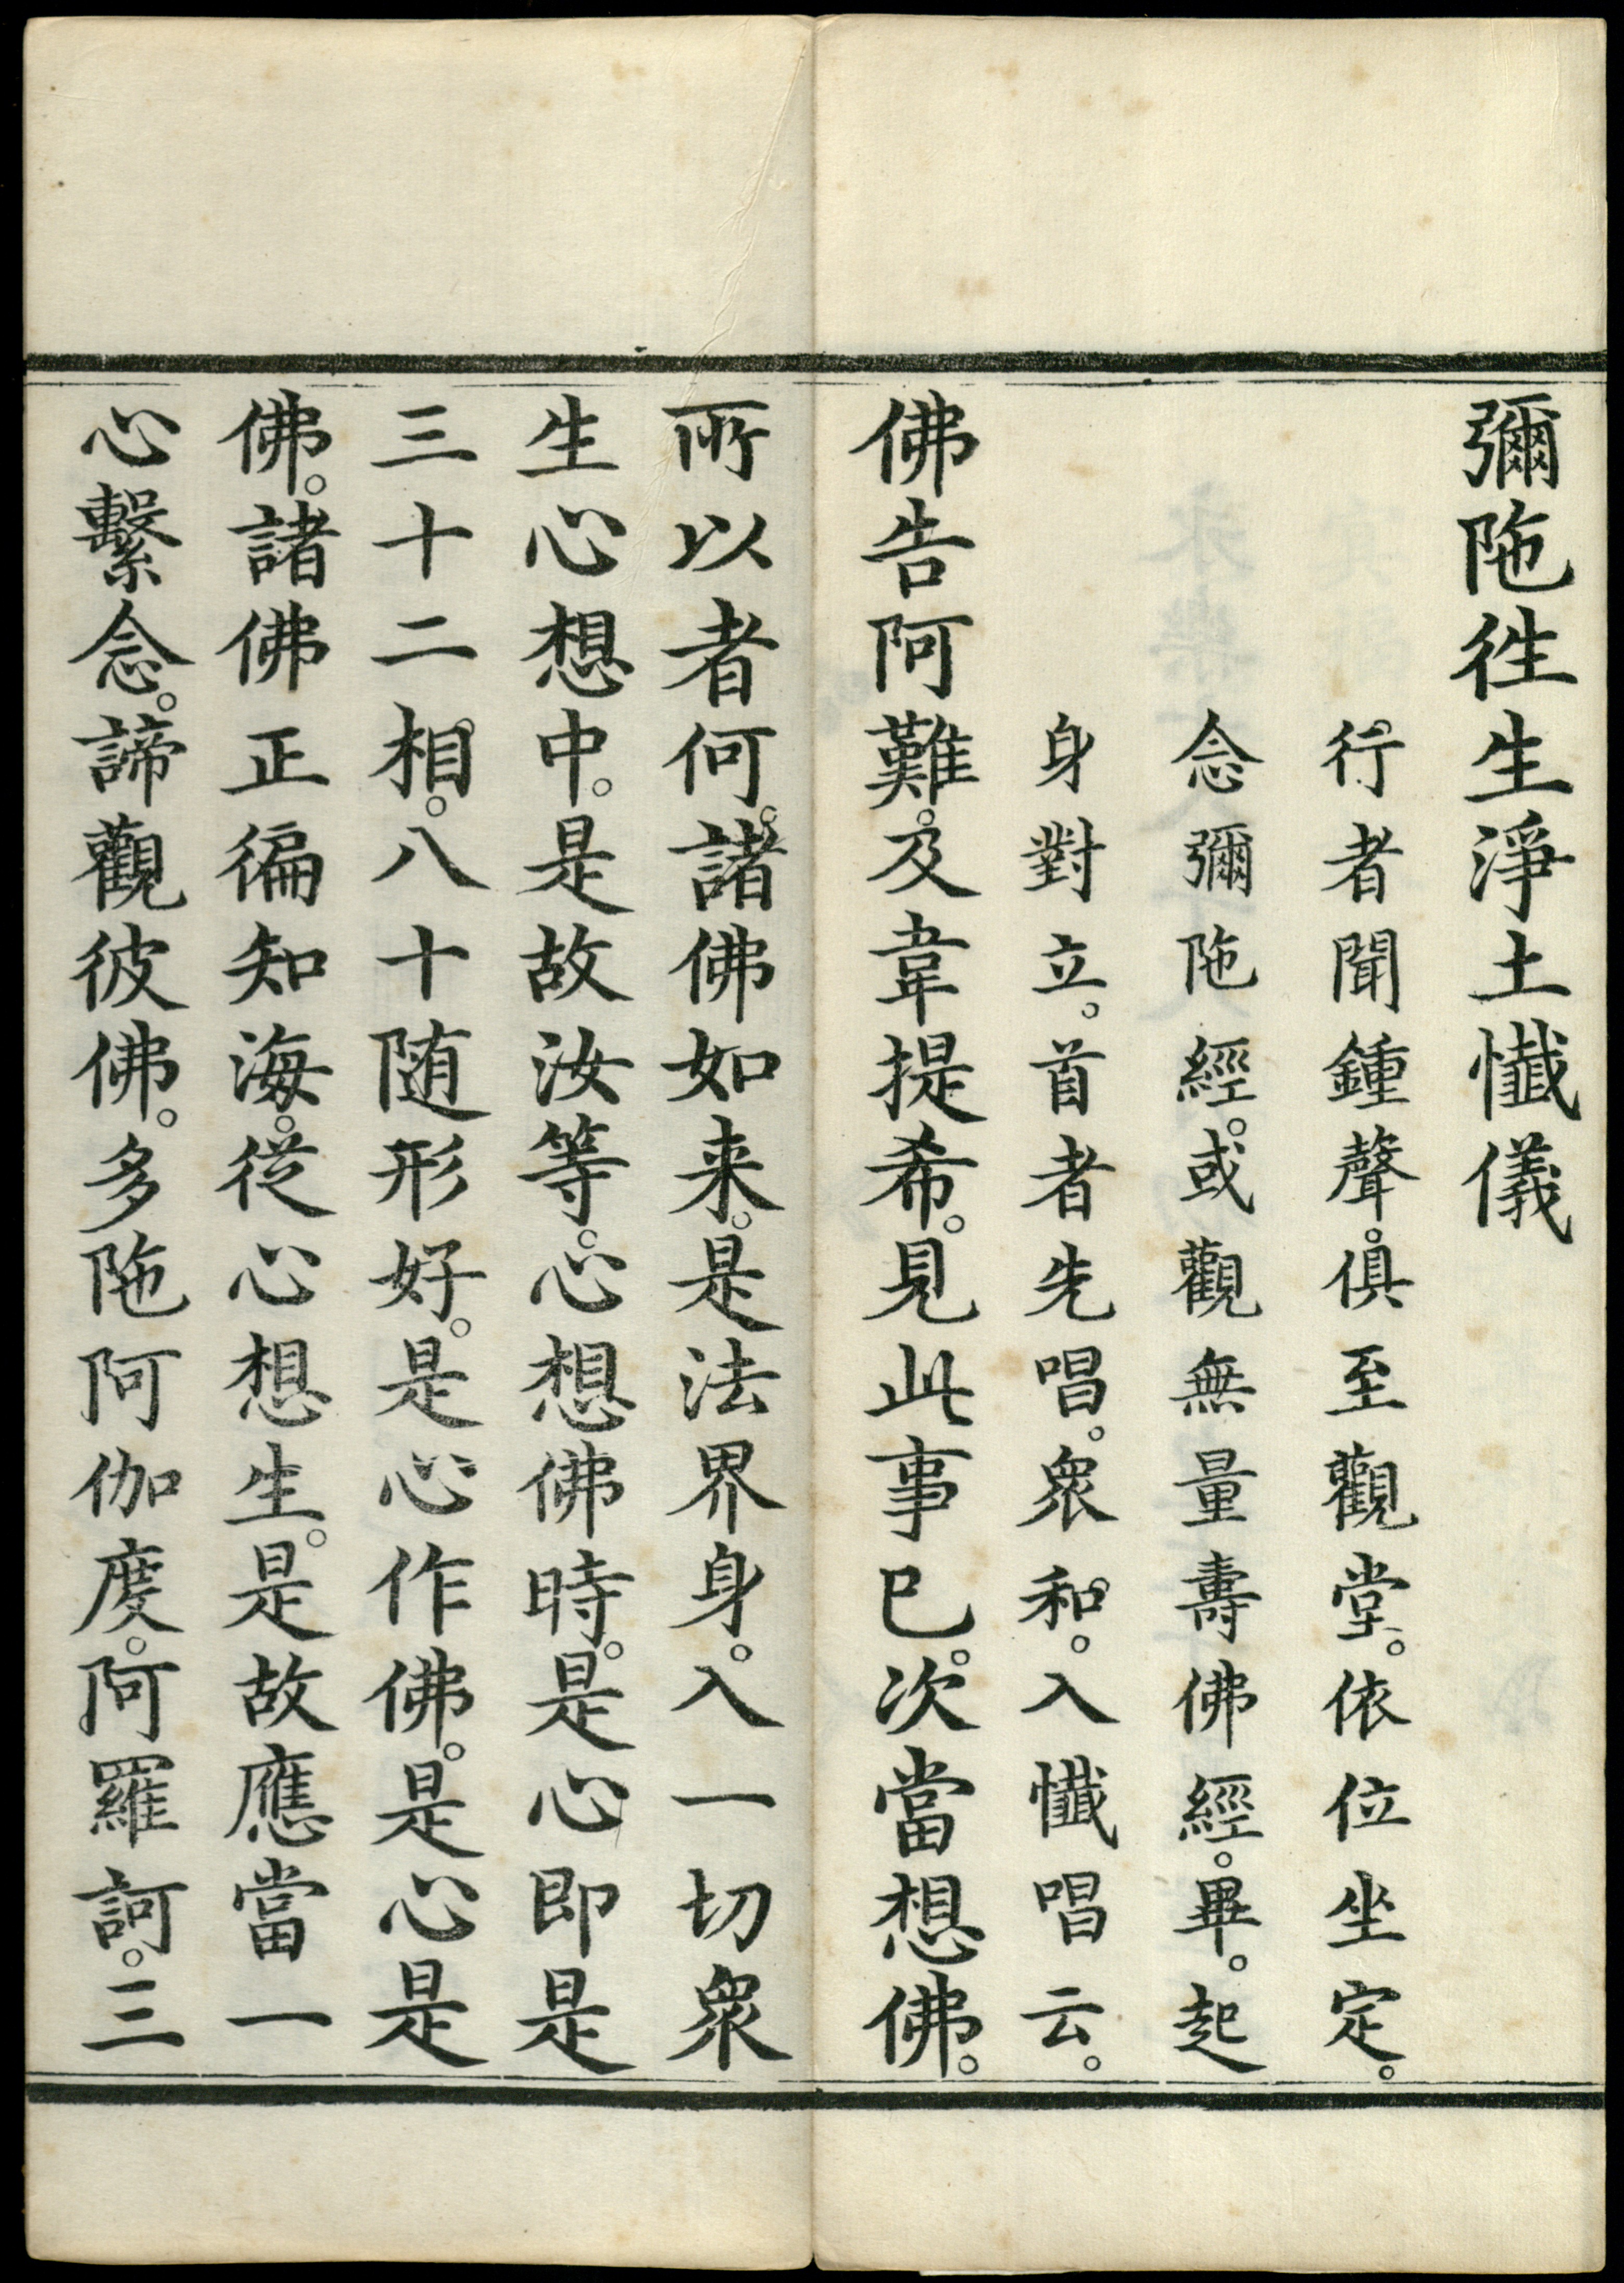 彌陁徃生淨土懺儀
行者聞鍾聲。俱至觀堂。依位坐定。
念彌陁經。或觀無量壽佛經。畢。起
身對立。首者先唱。衆和。入懺唱云。
佛告阿難。及韋提希。見此事已。次當想佛。
所以者何。諸佛如来。是法界身。入一切衆
生心想中。是故汝等。心想佛時。是心即是
三十二相。八十随形好。是心作佛。是心是
佛。諸佛正徧知海。從心想生。是故應當一
心繫念。諦觀彼佛。多陁阿伽度。阿羅訶。三